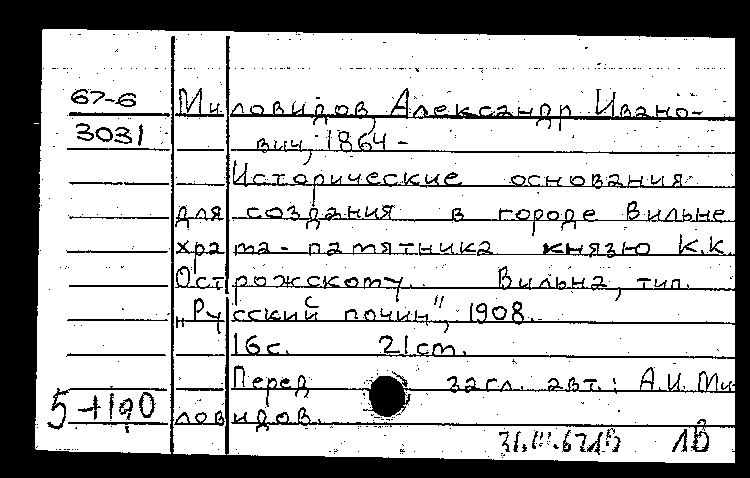 67-6 Миловидов, Александр Ивано-
3031 вич, 1864-
Исторические основания
для создания в городе Вильне
храма-памятника князю К.К.
Острожскому. Вильна, тип.
„Русский почин", 1908.
16с. 21см.
Перед загл. авт.: А.И. Ми
ловидов.
1В